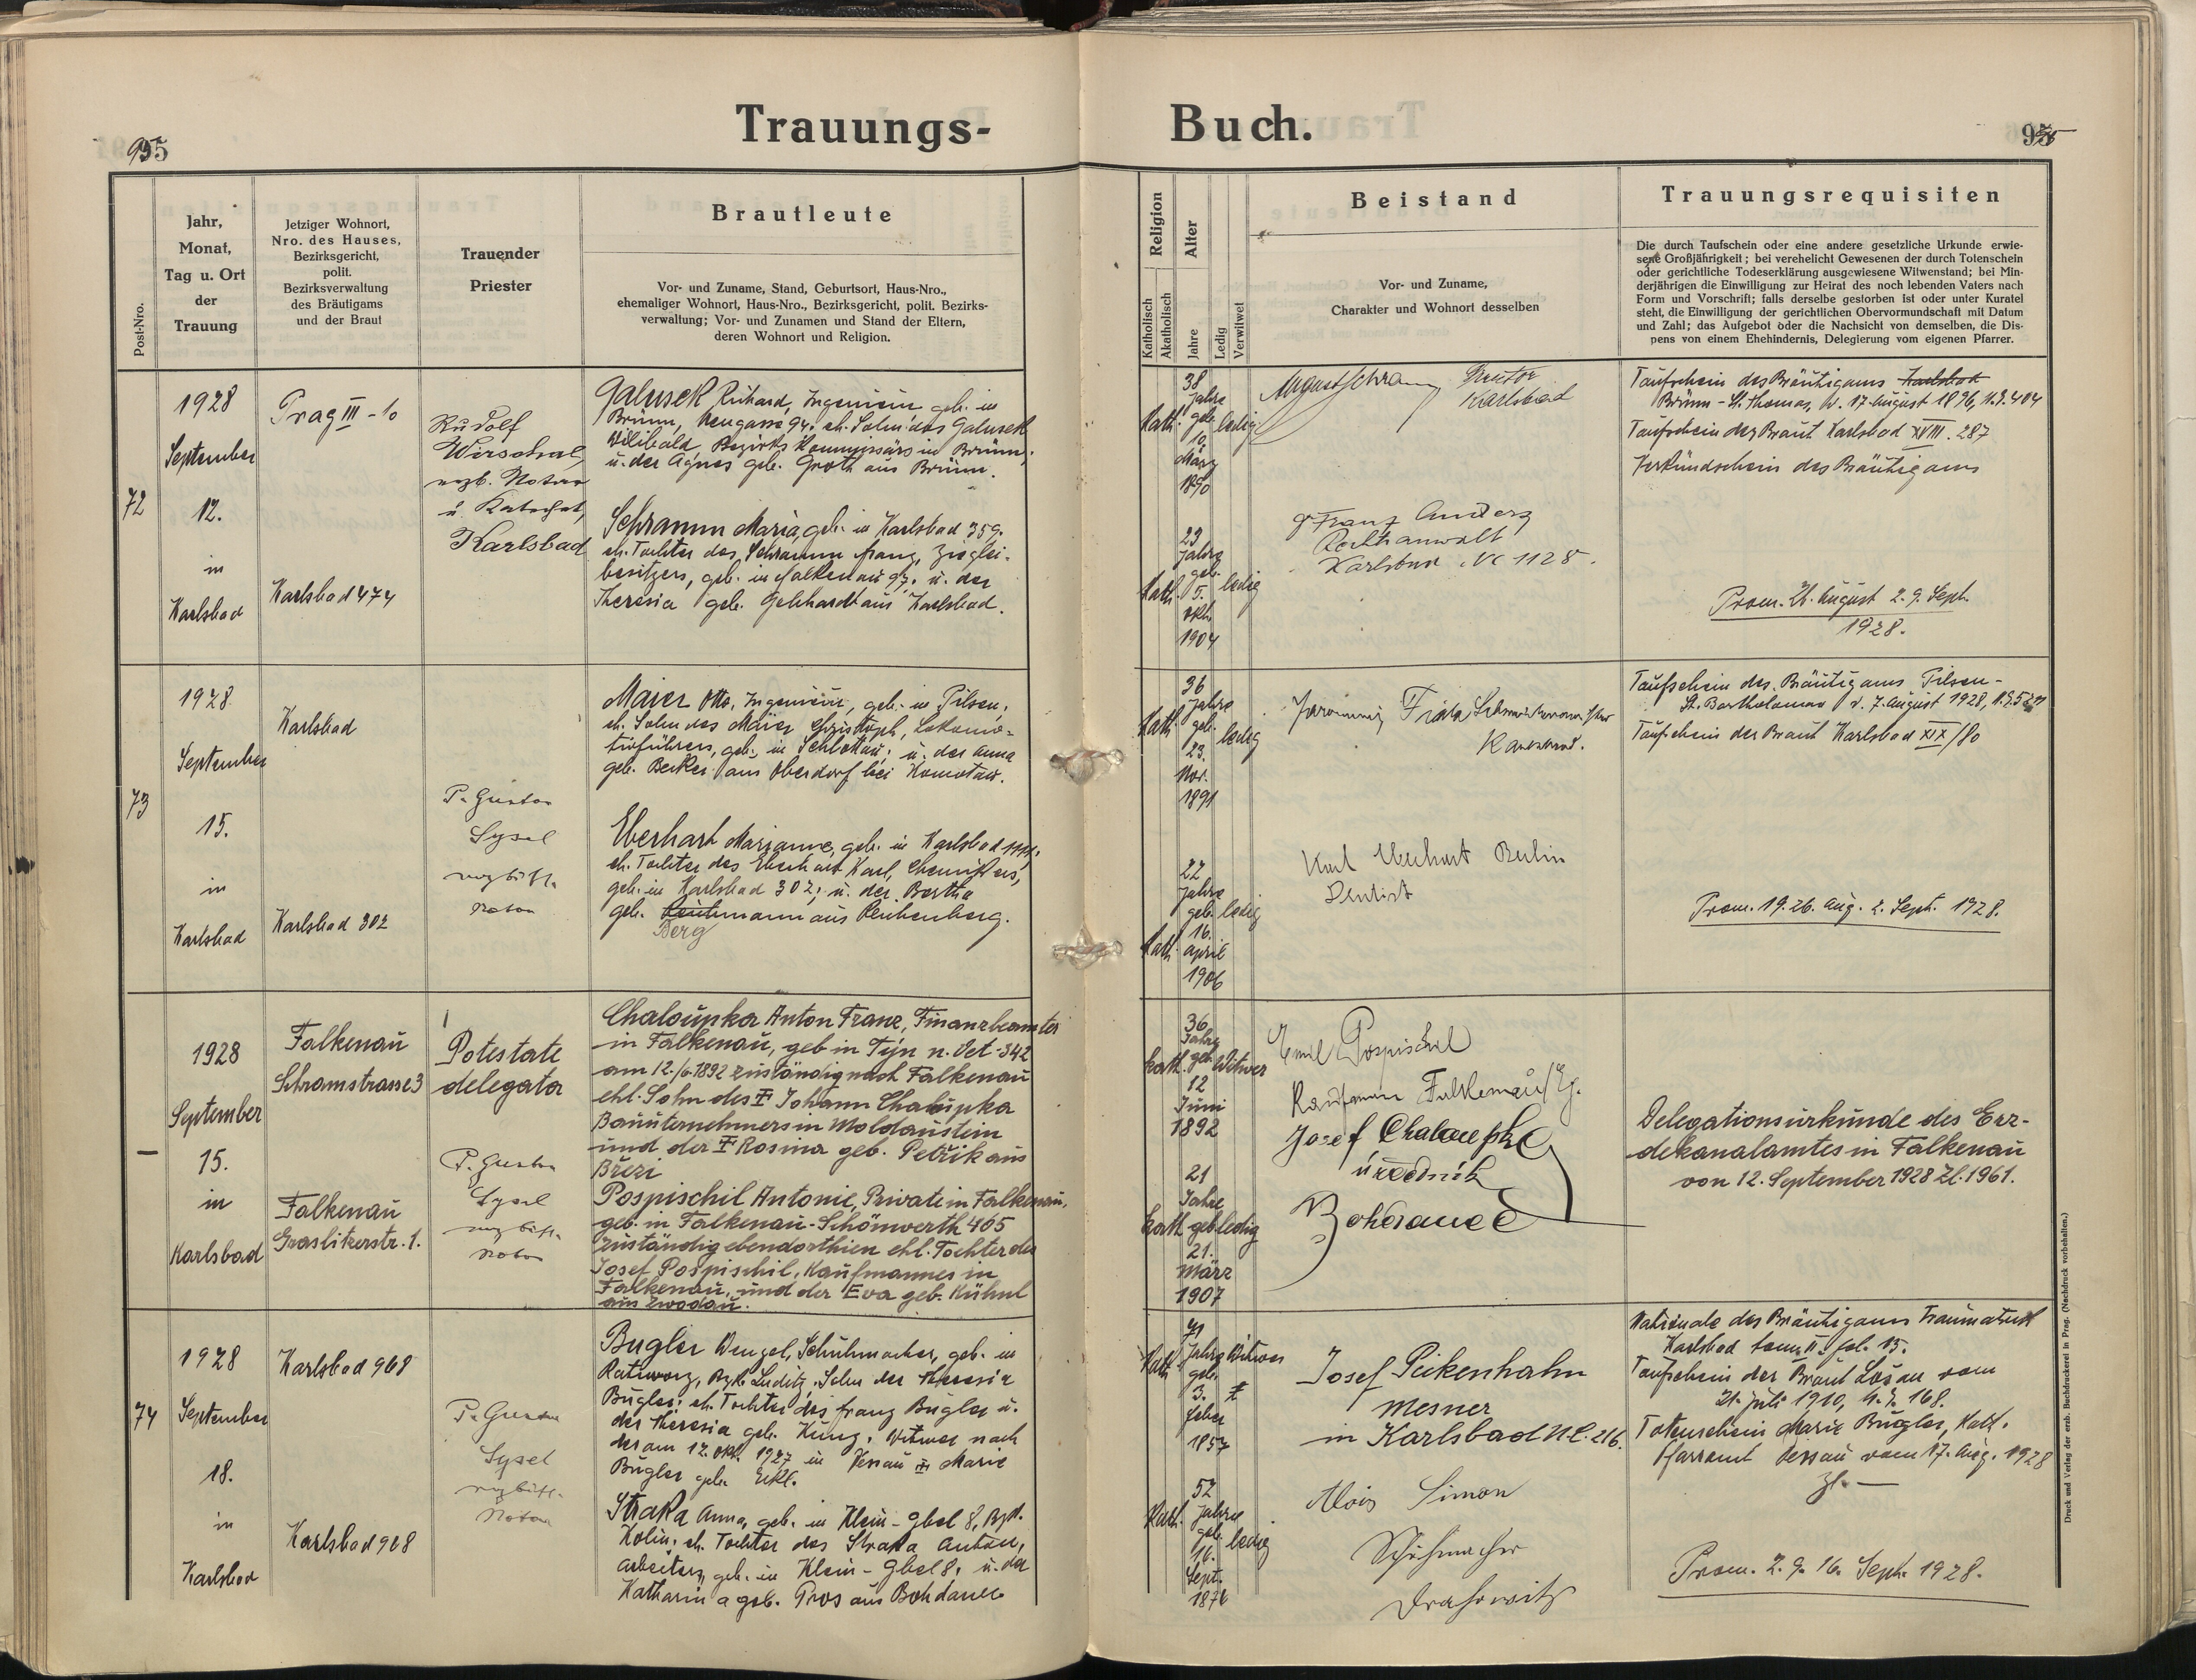 Trauungs-
Buch.
95
95
Post-Nro.
Jahr,
Monat,
Tag u. Ort
der
Trauung
Jetziger Wohnort,
Nro. des Hauses,
Bezirksgericht,
polit.
Bezirksverwaltung
des Bräutigams
und der Braut
Trauender
Priester
Brautleute
Vor- und Zuname, Stand, Geburtsort, Haus-Nro.,
ehemaliger Wohnort, Haus-Nro., Bezirksgericht, polit. Bezirks-
verwaltung; Vor- und Zunamen und Stand der Eltern,
deren Wohnort und Religion.
Religion
Katholisch
Akatholisch
Alter
Jahre
Ledig
Verwitwet
Beistand
Vor- und Zuname,
Charakter und Wohnort desselben
Trauungsrequisiten
Die durch Taufschein oder eine andere gesetzliche Urkunde erwie-
sene Großjährigkeit; bei verehelicht Gewesenen der durch Totenschein
oder gerichtliche Todeserklärung ausgewiesene Witwenstand; bei Min-
derjährigen die Einwilligung zur Heirat des noch lebenden Vaters nach
Form und Vorschrift; falls derselbe gestorben ist oder unter Kuratel
steht, die Einwilligung der gerichtlichen Obervormundschaft mit Datum
und Zahl; das Aufgebot oder die Nachsicht von demselben, die Dis-
pens von einem Ehehindernis, Delegierung vom eigenen Pfarrer.
72
1928
September
12.
in
Karlsbad
Prag III - 10
Karlsbad 474
Rudolf
Wirschal,
erzb. Notar
u. Katechet,
Karlsbad
Galusek Richard, Ingenieur, geb. in
Brünn, Neugasse 94. eh. Sohn des Galusek
Wilibald, Bezirks Kommissärs in Brünn,
u. der Agnes geb. Groth aus Brünn.
Schramm Maria, geb. in Karlsbad 359.
eh. Tochter des Schramm Franz, Ziegelei-
besitzers, geb. in Falkenau 97. u. der
Theresia geb. Gebhardt aus Karlsbad.
Kath.
38
Jahre
geb.
10.
März
1890
ledig
Kath.
23
Jahre
geb.
5.
Okt.
1904
ledig
August Schramm
Karlsbad
Franz Anderz
Rechtsanwalt
Karlsbad Nr 1128.
Taufschein des Bräutigams Karlsbad
Brünn - St. Thomas, v. 17. August 1896, N.J. 404
Taufschein der Braut Karlsbad XVIII. 287
Verkündschein des Bräutigams
Prom. 26. August 2. 9. Sept.
1928.
73
1928
September
15.
in
Karlsbad
Karlsbad
Karlsbad 302
P. Gustav
Sysel
erzbischfl.
Notar
Maier Otto, Ingenieur, geb. in Pilsen,
eh. Sohn des Maier Christoph, Lokomo-
tivführers, geb. in Schlakau; u. der Anna
geb. Becker aus Oberdorf bei Komotau.
Eberhart Marianne, geb. in Karlsbad
eh. Tochter des Eberhart Karl, Chemikers,
geb. in Karlsbad 302; u. der Bertha
geb. mann aus Reichenberg.
Berg
Kath.
36
Jahre
geb.
23.
Nov.
1891
ledig
Kath.
22
Jahre
geb.
16.
April
1906
ledig
Karlsbad.
Karl Eberhart Berlin
Dentist
Taufschein des Bräutigams Pilsen -
St. Bartholomäus v. 7. August 1928,
Taufschein der Braut Karlsbad XIX/80
Prom. 19. 26. Aug. 2. Sept. 1928.
—
1928
September
15.
in
Karlsbad
Falkenau
Schramstrasse 3
Falkenau
Graslitzerstr. 1.
Potestate
delegata
P. Gustav
Sysel
erzbischfl.
Notar
Chaloupka Anton Franz, Finanzbeamter
in Falkenau, geb in Týn n. Vet-342
am 12./6.1892 zuständig nach Falkenau
ehl. Sohn des ‡ Johann Chaloupka
Bauunternehmers in Moldaustein
und der ‡ Rosina geb. Petřik aus
Březi
Pospischil Antonie, Private in Falkenau,
geb. in Falkenau-Schönwerth 465
zuständig ebendorthien ehl. Tochter des
Josef Pospischil, Kaufmannes in
Falkenau, und der Eva geb. Kühnl
aus Zwodau.
kath.
36
Jahre
geb.
12
Juni
1892
Witwer
kath.
21
Jahre
geb
21.
März
1907
ledig
Emil Pospischil
Kaufmann Falkenau/Eg.
Josef Chaloupka
úředník
Bohdaneč
Delegationsurkunde des Erz-
dekanalamtes in Falkenau
von 12. September 1928 Zl. 1961.
74
1928
September
18.
in
Karlsbad
Karlsbad 968
Karlsbad 968
P. Gustav
Sysel
erzbischfl.
Notar
Bugler Wenzel, Schuhmacher, geb. in
Ratiworz, Bzk. Luditz, Sohn der Theresia
Bugler; eh. Tochter des Franz Bugler u.
der Theresia geb. Kunz. Witwer nach
der am 12. Okt. 1927 in Dessau ‡ Marie
Bugler geb. Eckl.
Straka Anna, geb. in Klein-Gbel 8, Bzk.
Kolin; eh. Tochter des Straka Anton,
Arbeiters, geb. in Klein-Gbel 8; u. der
Katharina geb. Pros aus Bohdanec
Kath.
71
Jahre
geb.
3.
Feber
1857
Witwer
Kath.
52
Jahre
geb.
16.
Sept.
1876
ledig
Josef Peikenhahn
Mesner
in Karlsbad N.C. 216.
Alois Simon
Schuhmacher
Drahowitz
Nationale des Bräutigams Traumatrik
Karlsbad tom. II. fol. 15.
Taufschein der Braut Lošan vom
21. Juli 1910, N.J. 168.
Totenschein Marie Bugler, Kath.
Pfarramt Dessau vom 17. Aug. 1928
Zl. —
Prom. 2. 9. 16. Sept. 1928.
Druck und Verlag der erzb. Buchdruckerei in Prag. (Nachdruck vorbehalten.)